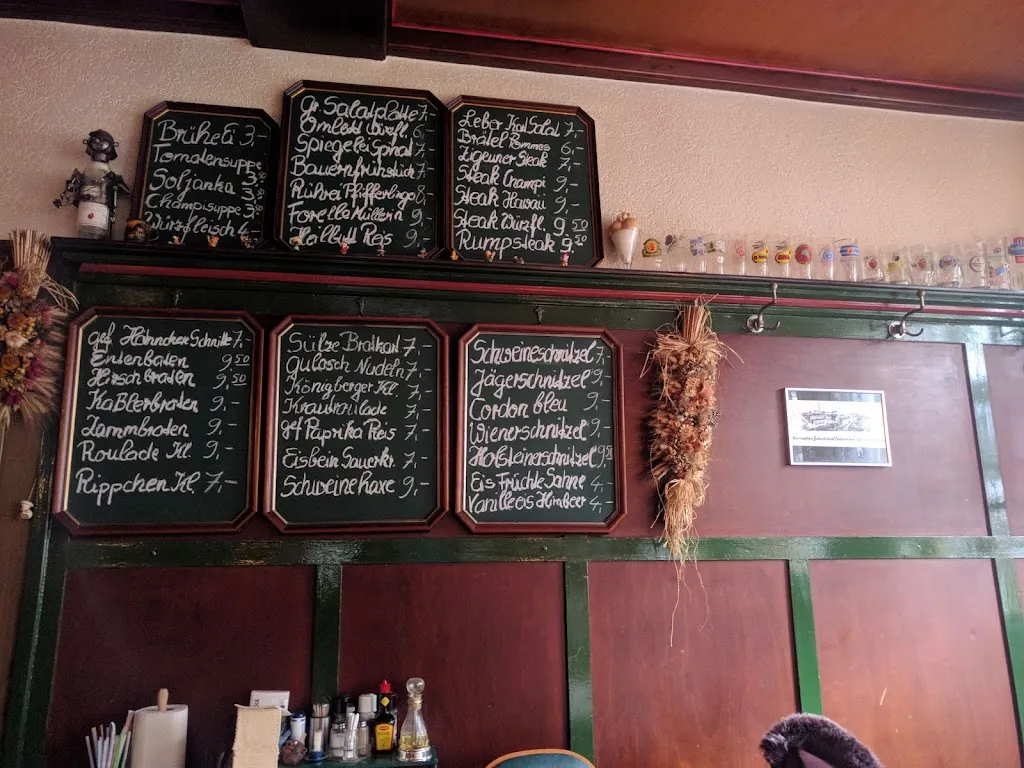 Brüh Ei 3,-
Tomatensuppe
Soljanka 3,50
Champisuppe 3,50
Würzfleisch 4,-
g. Salatplatte 7,-
Omlett Würzfl. 6,-
Spiegelei Spinat 7,-
Bauernfrühstück 7,-
Rührei Pfifferlinge 8,-
Forelle Müllerin 9,-
Heilbutt Reis 9,-
Leber Kart Salat 7,-
Brätel Pommes 6,-
Zigeuner Steak 7,-
Steak Champi 9,-
Steak Hawaii 9,-
Steak Würzfl. 9,50
Rumpsteak 9,50
gef Hähnchen Schnitt 7,-
Entenbraten 9,50
Hirschbraten 9,50
Kaßlerbraten 9,-
Lammbraten 9,-
Roulade Kl. 9,-
Rippchen Kl. 7,-
Sülze Bratkart 7,-
Gulasch Nudeln 7,-
Königberger Kl. 7,-
Krautroulade 7,-
gef Paprika Reis 7,-
Eisbein Sauerkr. 7,-
Schweinehaxe 9,-
Schweineschnitzel 7,-
Jägerschnitzel 9,-
Cordon bleu 9,-
Wienerschnitzel 9,-
Holsteinerschnitzel 9,50
Eis Früchte Sahne 4,-
Vanilleeis Himbeer 4,-